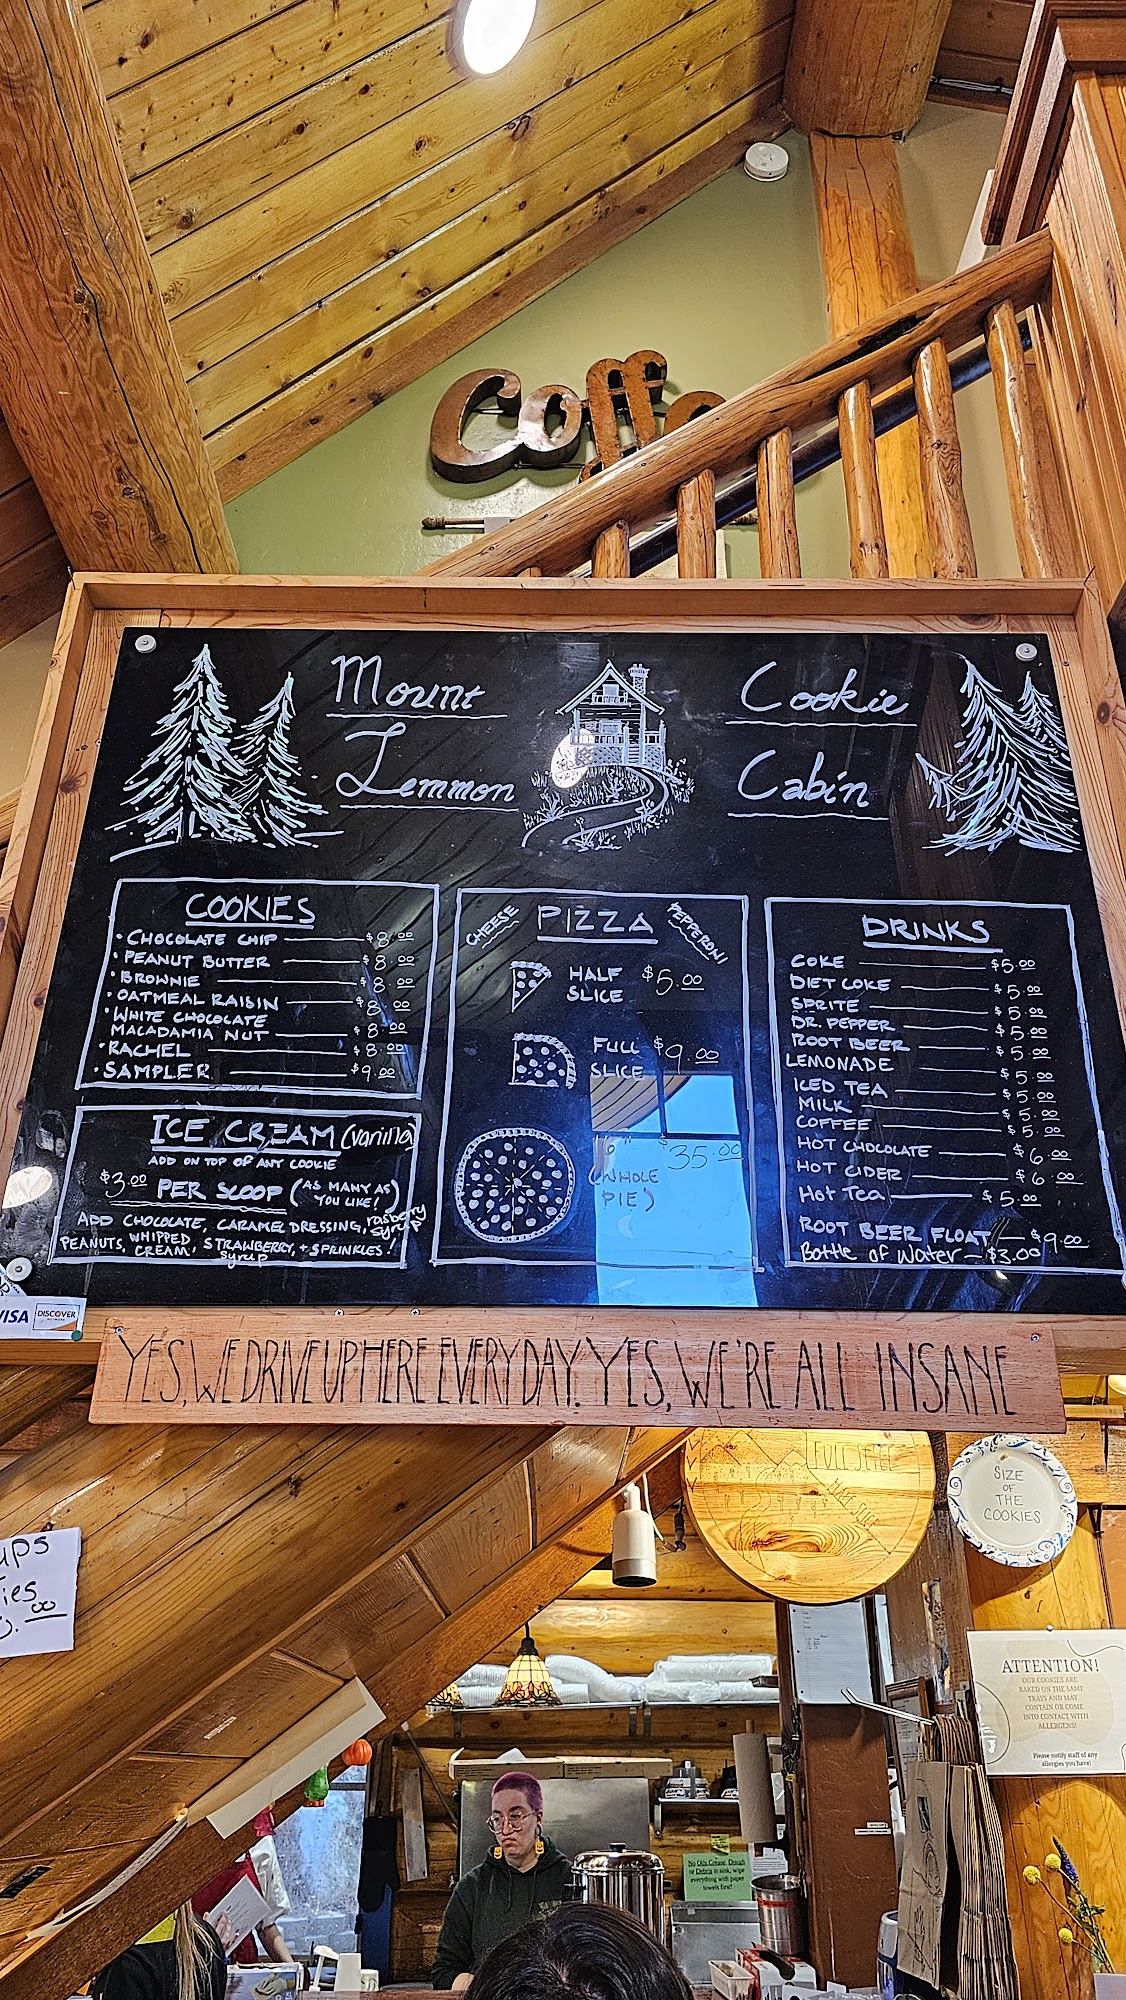 Coffe
Mount
Lemmon
Cookie
Cabin
COOKIES
• CHOCOLATE CHIP $8.00
• PEANUT BUTTER $8.00
• BROWNIE $8.00
• OATMEAL RAISIN $8.00
• WHITE CHOCOLATE
MACADAMIA NUT $8.00
• RACHEL $8.00
• SAMPLER $9.00
ICE CREAM (vanilla)
ADD ON TOP OF ANY COOKIE
$3.00 PER SCOOP (AS MANY AS
YOU LIKE!)
ADD CHOCOLATE, CARAMEL DRESSING, rasberry syrup
PEANUTS, WHIPPED CREAM, STRAWBERRY syrup, + SPRINKLES!
CHEESE PIZZA PEPPERONI
HALF
SLICE $5.00
FULL
SLICE $9.00
$35.00
(WHOLE
PIE)
DRINKS
COKE $5.00
DIET COKE $5.00
SPRITE $5.00
DR. PEPPER $5.00
ROOT BEER $5.00
LEMONADE $5.00
ICED TEA $5.00
MILK $5.00
COFFEE $5.00
HOT CHOCOLATE $6.00
HOT CIDER $6.00
Hot Tea $5.00
ROOT BEER FLOAT $9.00
Bottle of Water - $3.00
VISA
DISCOVER
YES, WE DRIVE UP HERE EVERYDAY. YES, WE'RE ALL INSANE
FULL SLICE
HALF SLICE
SIZE
OF
THE
COOKIES
ATTENTION!
OUR COOKIES ARE
BAKED ON THE SAME
TRAYS AND MAY
CONTAIN OR COME
INTO CONTACT WITH
ALLERGENS!
Please notify staff of any
allergies you have!
No Oils Grease, Dough
or Debris in sink, wipe
everything with paper
towels first!